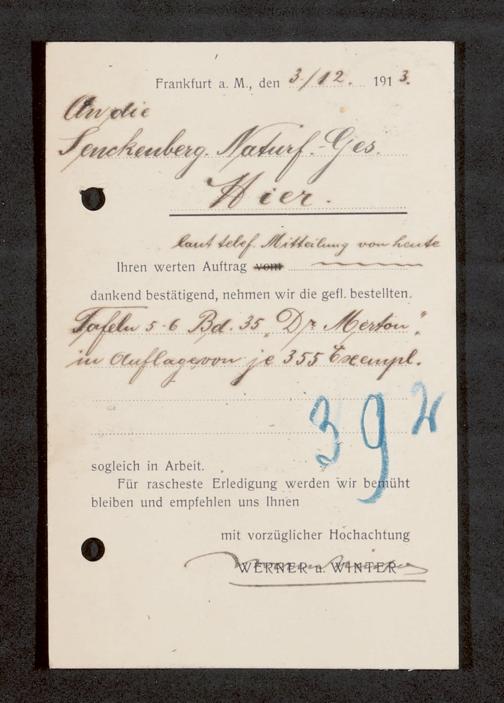 Frankfurt a. M., den 3/12. 1913.
An die
Senckenberg. Naturf. Ges.
Hier.
laut telef. Mitteilung von heute
Ihren werten Auftrag vom
dankend bestätigend, nehmen wir die gefl. bestellten.
Tafeln 5-6 Bd. 35 „Dr Merton“
in Auflage von je 355 Exempl.
392
sogleich in Arbeit.
Für rascheste Erledigung werden wir bemüht
bleiben und empfehlen uns Ihnen
mit vorzüglicher Hochachtung
WERNER u. WINTER